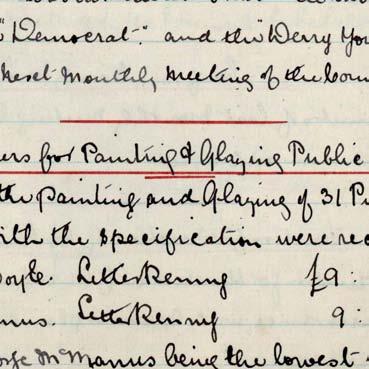 "Democrat." and the "Derry Jou
next monthly meeting of the Coun
ers for Painting & Glazing Public
the painting and Glazing of 31 Pu
with the specification were rec
oyle. Letterkenny £9:
anus. Letterkenny 9:
orge McManus being the lowest